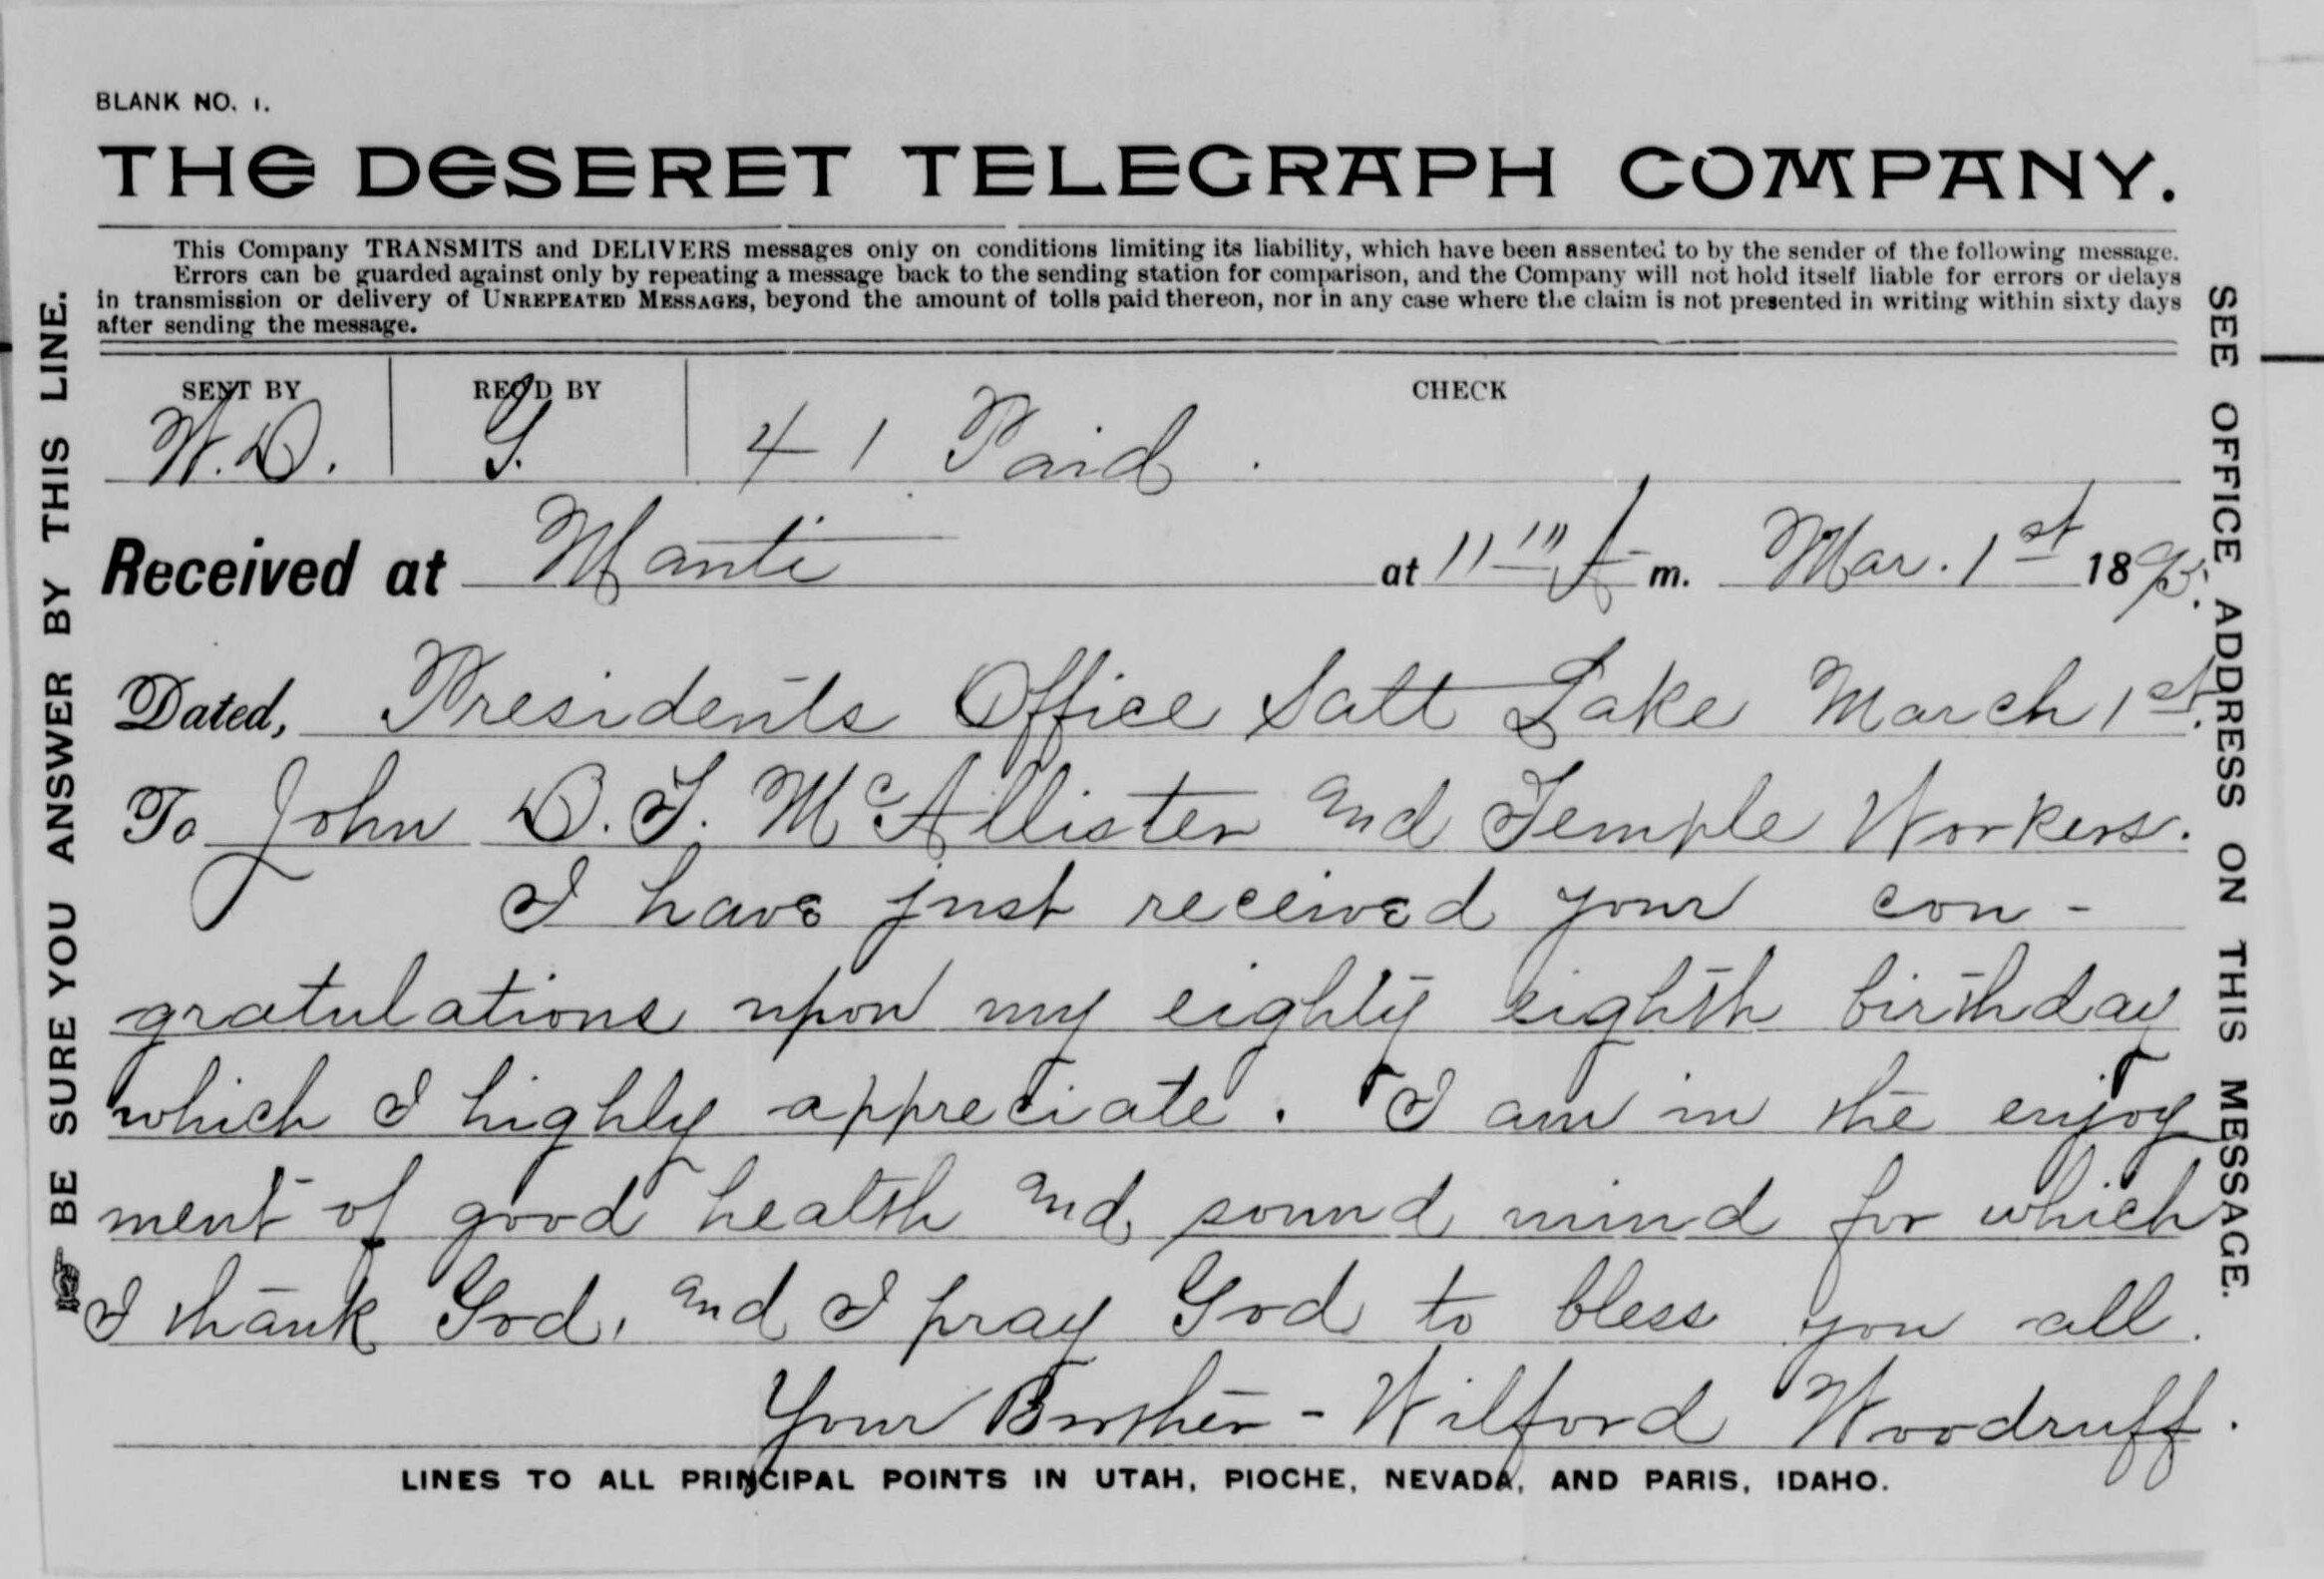 BLANK NO. 1.
THE DESERET TELEGRAPH COMPANY.
This Company TRANSMITS and DELIVERS messages only on conditions limiting its liability, which have been assented to by the sender of the following message.
Errors can be guarded against only by repeating a message back to the sending station for comparison, and the Company will not hold itself liable for errors or delays
in transmission or delivery of UNREPEATED MESSAGES, beyond the amount of tolls paid thereon, nor in any case where the claim is not presented in writing within sixty days
after sending the message.
SENT BY REC'D BY CHECK
W.D. G. 41 Paid.
Received at Manti at 11 A m. Mar. 1st 1895.
Dated, Presidents Office Salt Lake March 1st.
To John D.T. McAllister and Temple Workers.
I have just received your con-
gratulations upon my eighty eighth birthday
which I highly appreciate. I am in the enjoy
ment of good health and sound mind for which
I thank God, and I pray God to bless you all.
Your Brother - Wilford Woodruff.
LINES TO ALL PRINCIPAL POINTS IN UTAH, PIOCHE, NEVADA, AND PARIS, IDAHO.
BE SURE YOU ANSWER BY THIS LINE.
SEE OFFICE ADDRESS ON THIS MESSAGE.